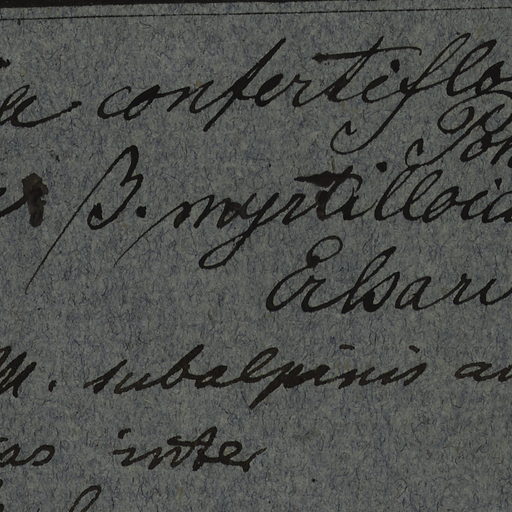 ia confertiflo
Pon
β. myrtilloid
M. subalpinis au
as inter